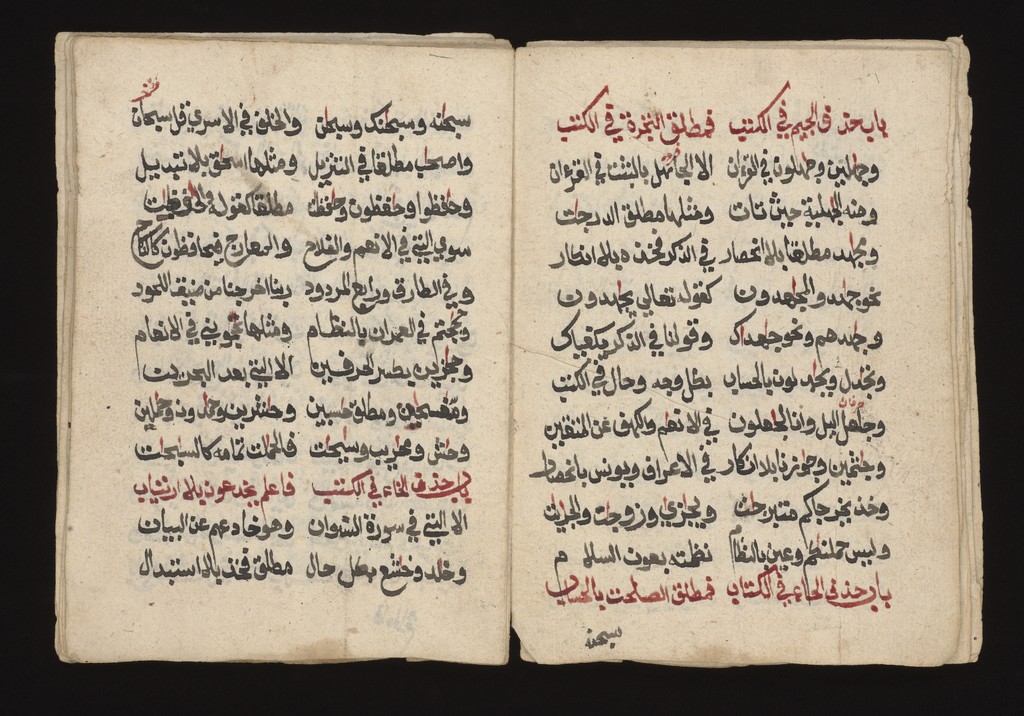 باب حذف الجيم في الكتب فمطلق التجرة في الكتب
وجملين وجهلون في القرءان الا الجاهل بالبثث في القرءان
ومنه الجهلية حيث تات ومثلها مطلق الدرجت
وجهد مطلقا بلا انحصار في الذكر فخذه بلا انتظار
نحو جهد والمجهدون كقوله تعالى يجهدون
وجهدهم ونحو جهداك وقولنا في الذكر يكفياك
وتجدل ويجدلون بالحساب بكل وجه وحال في الكتب
وجاهل اليل وانا لجاعلون في الانعم والكهف عن المتقنين
وجثمين وجوزنا بلا انكار في الاعراف ويونس بانحصار
وخذ بخرجاكم متبرجت ويجزي وزوجت والجريت
وليس حملتهم وعين بالنظام نظمته بعون السلام
باب حذف الحاء في الكتاب فمطلق الصلحت بالحساب
سبحنه
سبحنه وسبحنك وسبحن والخلف في الاسرى قل سبحان
واصحب مطلقا في التنزيل ومثلها اسحق بلا تبديل
وحفظوا وحفظون وحفظت مطلقا كقوله في الحفظت
سوى التي في الانعم والفلاح والمعارج يحافظون كالتاج
وفي الطارق ورابع لمردود ربنا اخرجنا من ضيق اللحود
وحججتم في العمران بالنظام ومثلها تحجوني في الانعام
وحجزين بحصر الحرفين الا التي بعد البحرين
ومسحين ومطلق حسبين وحشرين وحمدون وحملين
وحش ومحريب وسبحت فالحملت تمامه كالسبحت
باب حذف الخاء في الكتب فاعلم يخدعون بلا ارتياب
الا التي في سورة النسوان وهو خادعهم عن البيان
وخلد وخشع بكل حال مطلق فخذ بالاستبدال